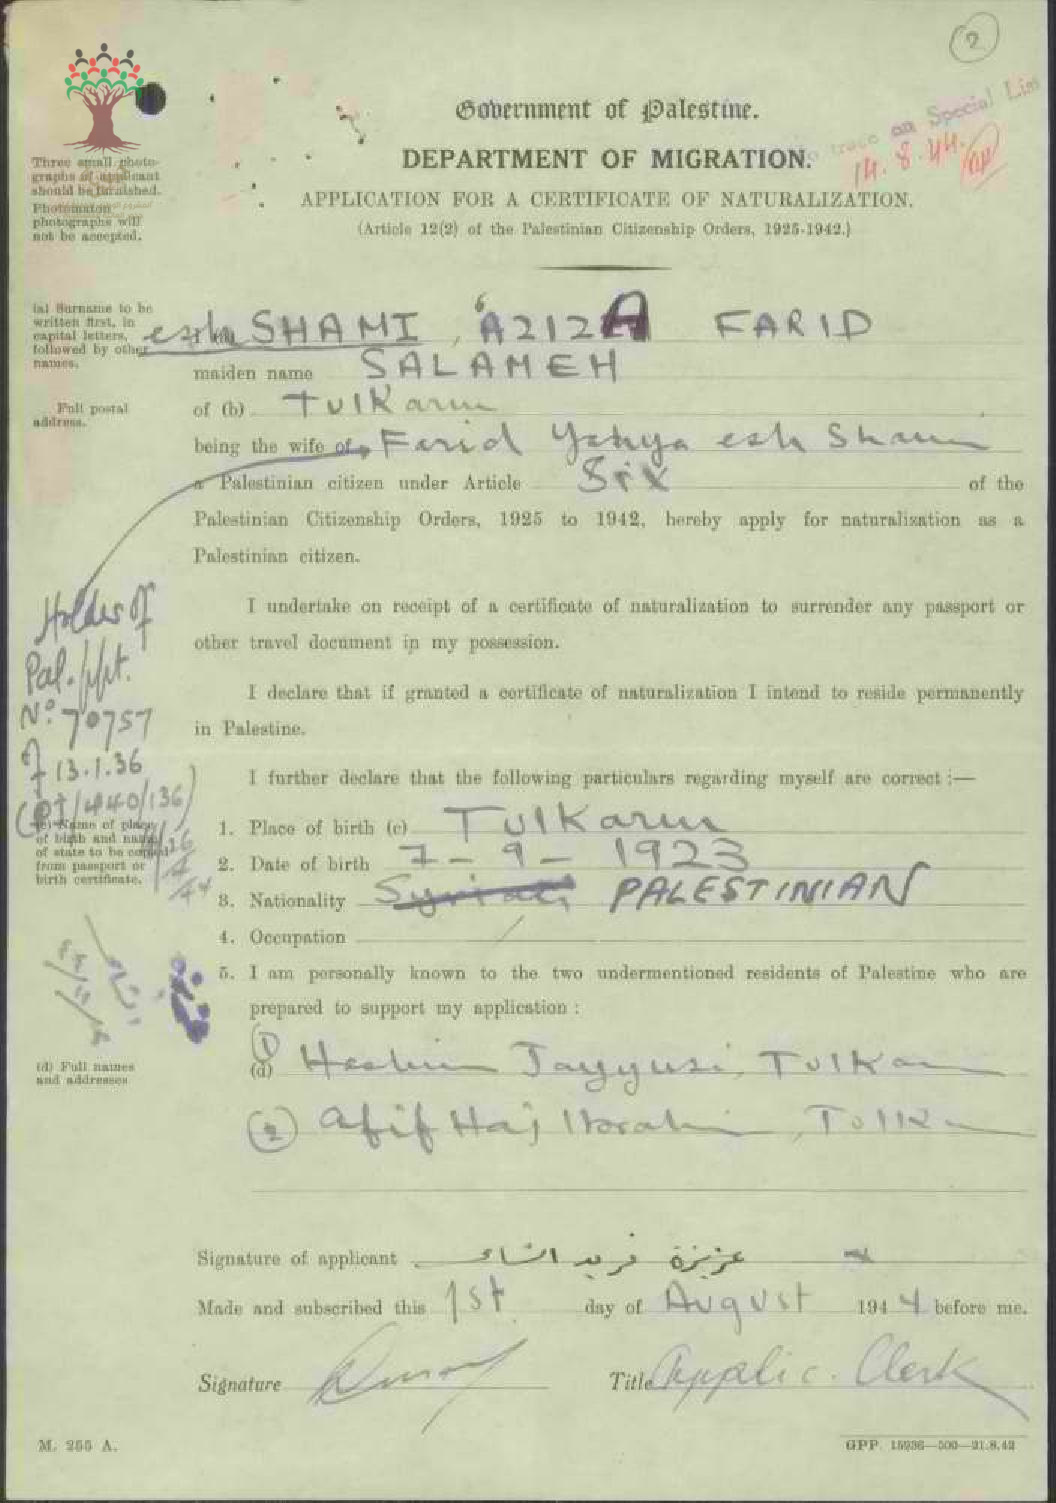 2
Three small photo-
graphs of applicant
should be furnished.
Photomaton
photographs will
not be accepted.
Government of Palestine.
DEPARTMENT OF MIGRATION.
trace on Special List
14.8.44.
APPLICATION FOR A CERTIFICATE OF NATURALIZATION.
(Article 12(2) of the Palestinian Citizenship Orders, 1925-1942.)
(a) Surname to be
written first, in
capital letters,
followed by other
names.
esh SHAMI, 'AZIZA FARID
maiden name SALAMEH
Full postal
address.
of (b) Tulkarm
being the wife of Farid Yahya esh Shami
a Palestinian citizen under Article Six of the
Palestinian Citizenship Orders, 1925 to 1942, hereby apply for naturalization as a
Palestinian citizen.
I undertake on receipt of a certificate of naturalization to surrender any passport or
other travel document in my possession.
I declare that if granted a certificate of naturalization I intend to reside permanently
in Palestine.
Holder of
Pal. ppt.
No. 70757
of 13.1.36
(PT/440/136)
I further declare that the following particulars regarding myself are correct :—
(c) Name of place
of birth and name
of state to be copied
from passport or
birth certificate.
1. Place of birth (c) Tulkarm
2. Date of birth 7-9-1923
3. Nationality Syrian PALESTINIAN
4. Occupation
5. I am personally known to the two undermentioned residents of Palestine who are
prepared to support my application :
(d) Full names
and addresses
(1)
(d) Hashim Jayyusi, Tulkarm
(2) Afif Haj Ibrahim, Tulkarm
Signature of applicant عزيزة فريد الشامي
Made and subscribed this 1st day of August 1944 before me.
Signature Title Applic. Clerk
M. 255 A.
GPP. 15936—500—21.8.42